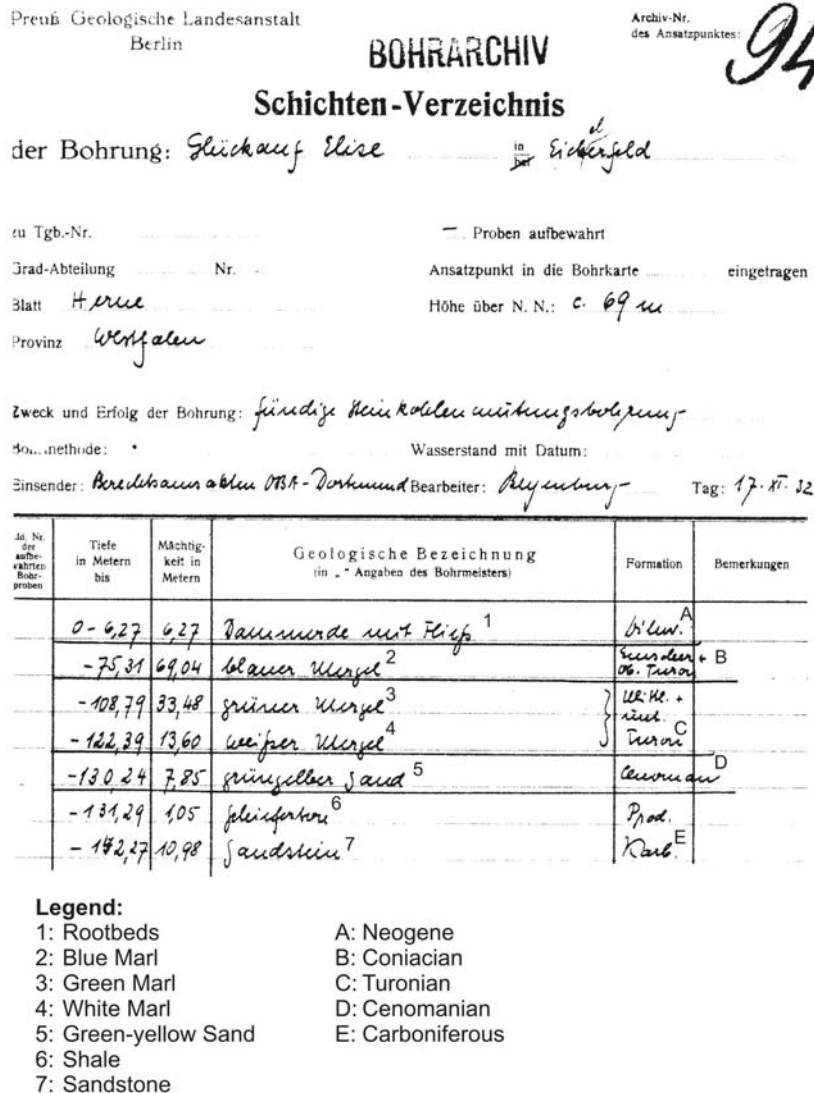 Preuß Geologische Landesanstalt
Berlin
BOHRARCHIV
Archiv-Nr.
des Ansatzpunktes:
94
Schichten-Verzeichnis
der Bohrung: Glückauf Elise in bei Eickelfeld
zu Tgb.-Nr.
Proben aufbewahrt
Grad-Abteilung Nr.
Ansatzpunkt in die Bohrkarte eingetragen
Blatt Herne
Höhe über N. N.: c. 69 m
Provinz Westfalen
Zweck und Erfolg der Bohrung: fündige Steinkohlenmutungsbohrung
Wasserstand mit Datum:
Einsender: Berechtsamsakten OBA-Dortmund Bearbeiter: Beyenburg Tag: 17. XI. 32
Jd. Nr. der aufbe- wahrten Bohr- proben
Tiefe in Metern bis
Mächtig- keit in Metern
Geologische Bezeichnung
(in „ " Angaben des Bohrmeisters)
Formation
Bemerkungen
0-6,27 6,27 Dammerde mit Fließ 1 Diluv. A
-75,31 69,04 blauer Mergel 2 Emscher + ob. Turon B
-108,79 33,48 grüner Mergel 3 +
-122,39 13,60 weißer Mergel 4 Turon C
-130,24 7,85 grüngelber Sand 5 Cenoman D
-131,29 1,05 Schieferton 6 Prod.
-142,27 10,98 Sandstein 7 Karb. E
Legend:
1: Rootbeds
2: Blue Marl
3: Green Marl
4: White Marl
5: Green-yellow Sand
6: Shale
7: Sandstone
A: Neogene
B: Coniacian
C: Turonian
D: Cenomanian
E: Carboniferous